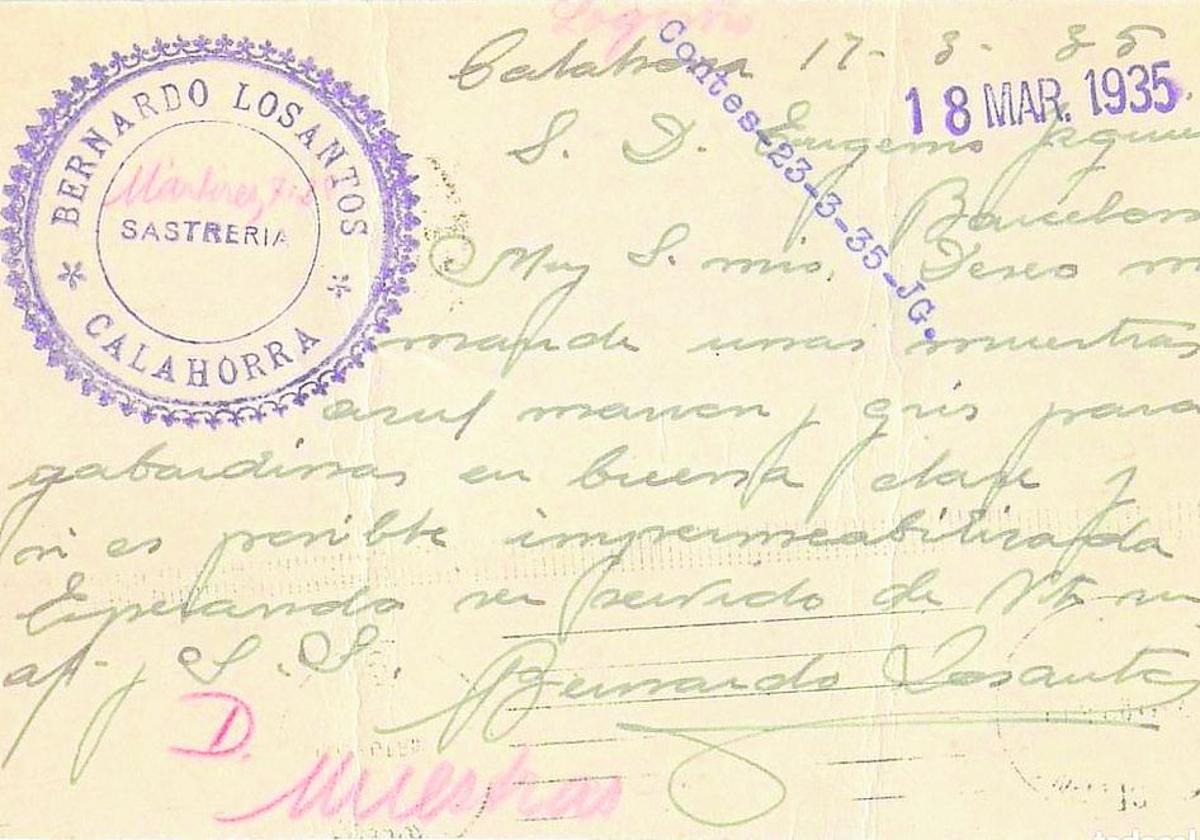 BERNARDO LOSANTOS
SASTRERIA
CALAHORRA
Calahorra 17- 3- 35
18 MAR. 1935
Contes-23-3-35-JG.
S. D. Eugenio
Barcelona
Muy S. mio. Deseo m
mande unas muestras
azul marron y gris para
gabardinas en buena clase y
si es posible impermeabilizada
Esperando ser servido de Vd. su
af. y S. S.
Bernardo Losantos
D.
Muestras